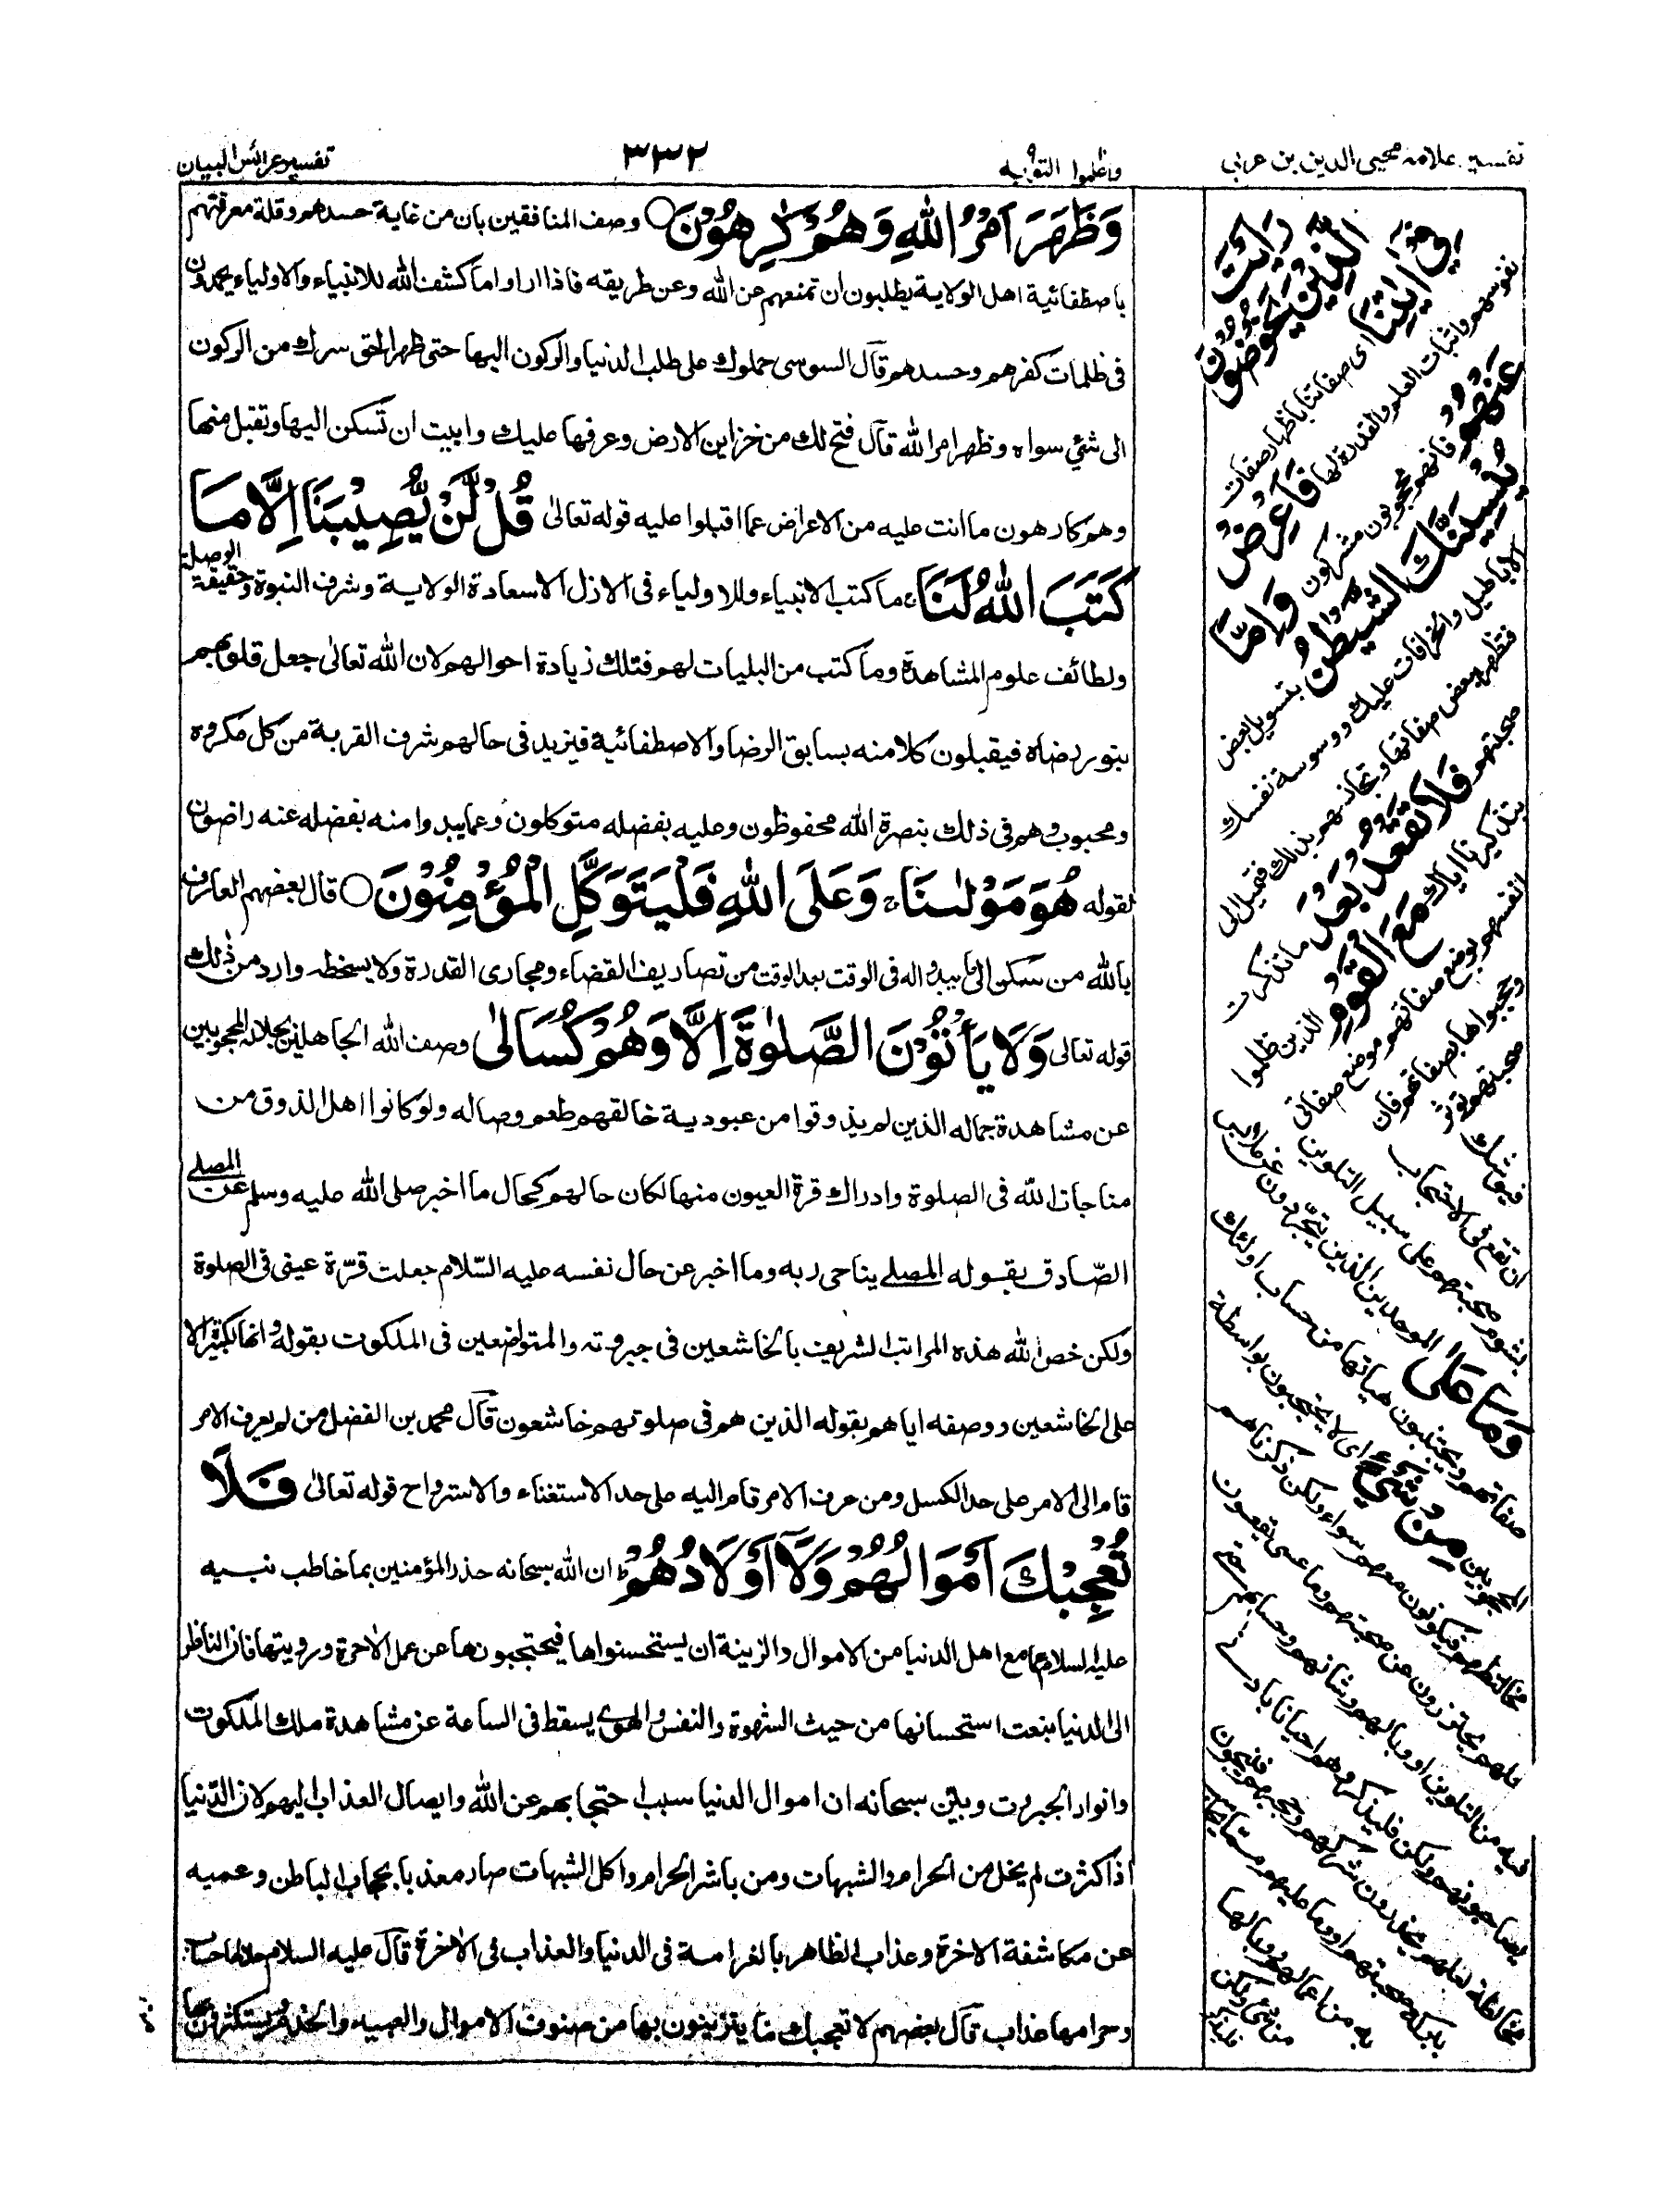 تفسير علامه محيى الدين بن عربى
واعلموا التوبه ٩
٣٣٢
تفسير عرائس البيان
وَظَهَرَ اَمْرُ اللّٰهِ وَهُمْ كٰرِهُوْنَ○ وصف المنافقين بان من غاية حسدهم وقلة معرفتهم
باصطفائية اهل الولاية يطلبون ان تمنعهم عن الله وعن طريقه فاذا اراو اما كشف الله للانبياء والاولياء يجحدون
فى ظلمات كفرهم وحسدهم قال السوسى حملوك على طلب الدنيا والركون اليها حتى ظهر الحق سرك من الركون
الى شئ سواه وظهر امر الله قال فتح لك من خزاين الارض وعرفها عليك وابيت ان تسكن اليها وتقبل منها
وهم كارهون ما انت عليه من الاعراض عما اقبلوا عليه قوله تعالىٰ قُلْ لَّنْ يُّصِيْبَنَا اِلَّا مَا
كَتَبَ اللّٰهُ لَنَا ما كتب الانبياء وللاولياء فى الازل الا سعادة الولاية وشرف النبوة وحقيقة الوصلة
ولطائف علوم المشاهدة وما كتب من البليات لهم فتلك زيادة احوالهم لان الله تعالىٰ جعل قلوبهم
بنور رضاه فيقبلون كلا منه بسابق الرضا والاصطفائية فيزيد فى حالهم شرف القربة من كل مكروه
ومحبوب وهم فى ذلك بنصرة الله محفوظون وعليه بفضله متوكلون وعما يبدوا منه بفضله عنه راضون
لقوله هُوَ مَوْلٰىنَا وَعَلَى اللّٰهِ فَلْيَتَوَكَّلِ الْمُؤْمِنُوْنَ○ قال بعضهم العارف
بالله من سكن الى ما يبدو له فى الوقت بعد الوقت من تصاريف القضاء ومجارى القدرة ولا يسخطه وارد من ذلك
قوله تعالى وَلَا يَأْتُوْنَ الصَّلٰوةَ اِلَّا وَهُمْ كُسَالىٰ وصف الله الجاهلين بجلاله المحجوبين
عن مشاهدة جماله الذين لم يذوقوا من عبودية خالقهم طعم وصاله ولو كانوا اهل الذوق من
مناجات الله فى الصلوة وادراك قرة العيون منها لكان حالهم كحال ما اخبر صلى الله عليه وسلم عن المصلے
الصّادق بقوله المصلے يناجى ربه وما اخبر عن حال نفسه عليه السّلام جعلت قرّة عينى فى الصلوة
ولكن خص الله هذه المراتب الشريف بالخاشعين فى جبروته والمتواضعين فى الملكوت بقوله وانها لكبيرة الا
على الخاشعين ووصفه اياهم بقوله الذين هم فى صلوتهم خاشعون قال محمد بن الفضل من لم يعرف الامر
قام الى الامر على حد الكسل ومن عرف الامر قام اليه على حد الاستغناء والاسترواح قوله تعالىٰ فَلَا
تُعْجِبْكَ اَمْوَالُهُمْ وَلَا اَوْلَادُهُمْ ان الله سبحانه حذر المؤمنين بما خاطب نبيه
عليه السلام عما مع اهل الدنيا من الاموال والزينة ان يستحسنواها فيحتجبون بها عن عمل الاخرة ورويتها فان الناظر
الى الدنيا بنعت استحسانها من حيث الشهوة والنفس والهوى يسقط فى الساعة عن مشاهدة ملك الملكوت
وانوار الجبروت وبيّن سبحانه ان اموال الدنيا سبب احتجابهم عن الله وايصال العذاب اليهم لان الدّنيا
اذا كثرت لم يخل من الحرام والشبهات ومن باشر الحرام واكل الشبهات صار معذبا بحجاب الباطن وعميه
عن مكاشفة الاخرة وعذاب الظاهر بالغرامة فى الدنيا والعذاب فى الاخرة قال عليه السلام حلالها حساب
وحرامها عذاب قال بعضهم لا تعجبك ما يتزينون بها من صنوف الاموال والعبيد والخدم
رَاَيْتَ
الَّذِيْنَ يَخُوْضُوْنَ
فِىْ اٰيٰتِنَا اى صفاتنا باظهار صفات
نفوسهم واثبات العلم والقدرة لها فَاَعْرِضْ
عَنْهُمْ فانهم محجوبون مشركون وَاِمَّا
يُنْسِيَنَّكَ الشَّيْطٰنُ بتسويل بعض
الاباطيل والخرافات عليك ووسوسة نفسك
فتظهر ببعض صفاتها وتجانسهم بذلك فتميل الى
صحبتهم فَلَا تَقْعُدْ بَعْدَ ما تذكرت
بتذكيرنا اياك مَعَ الْقَوْمِ الذين ظلموا
انفسهم بوضع صفاتهم موضع صفاتى
وحجبوا بها بصفاتهم فان
صحبتهم تؤثر
فيوشك
ان تقع فى الاحتجاب
بشوم صحبتهم على سبيل التلوين
وَمَا عَلَى الموحدين الذين يتجردون عن
صفاتهم ويجتنبون هياتها من حساب اولئك
المحجوبين مِنْ شَىْءٍ اى لا يحتجبون بواسطة
مخالطتهم فيكونون معهم سواء ولكن ذكرناهم